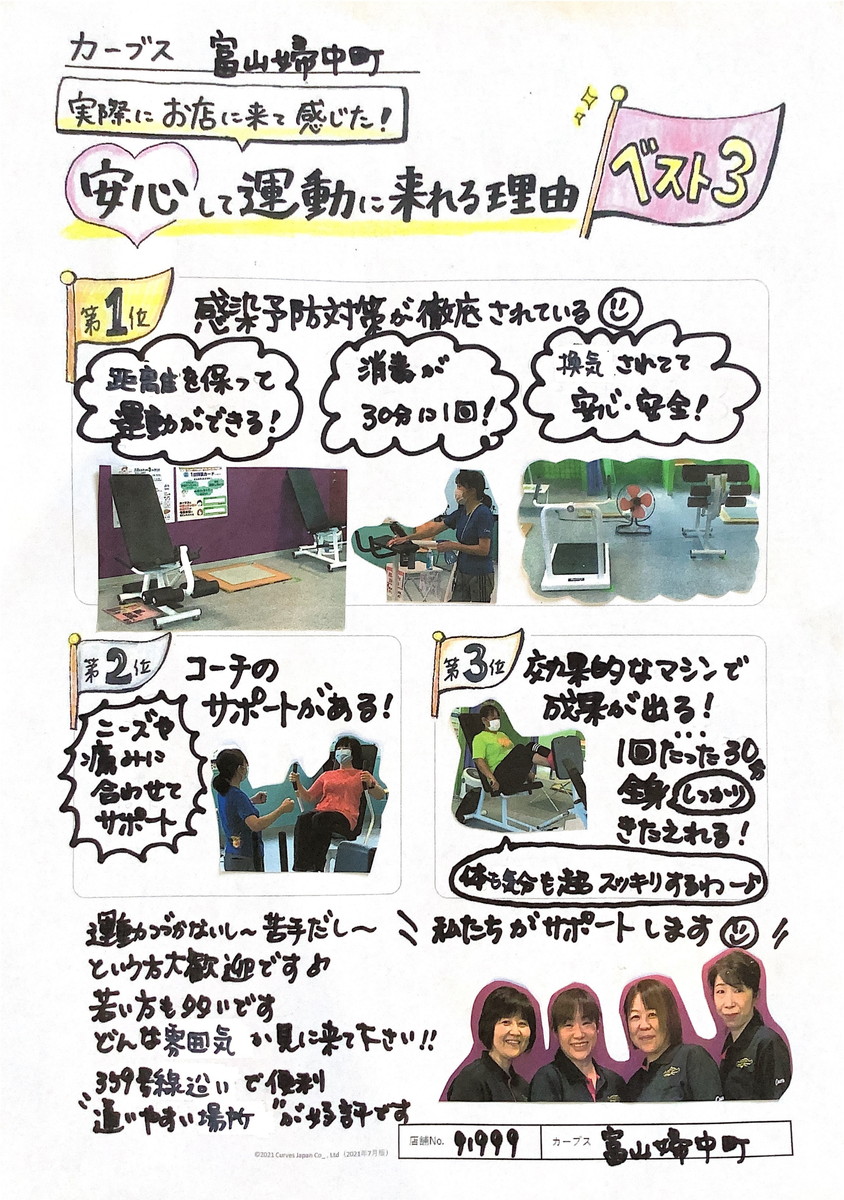 カーブス 富山婦中町
実際にお店に来て感じた!
安心して運動に来れる理由
ベスト3
第1位
感染予防対策が徹底されている
距離を保って
運動ができる!
消毒が
30分に1回!
換気されてて
安心・安全!
第2位
コーチの
サポートがある!
ニーズや
痛みに
合わせて
サポート
第3位
効果的なマシンで
成果が出る!
1回たった30分
全身しっかり
きたえれる!
体も気分も超スッキリするわ〜♪
運動つづかないし〜苦手だし〜
という方大歓迎です♪
若い方も多いです
どんな雰囲気か見に来て下さい!!
359号線沿いで便利
通いやすい場所が好評です
私たちがサポートします
店舗No. 91999 カーブス 富山婦中町
©2021 Curves Japan Co., Ltd (2021年7月版)